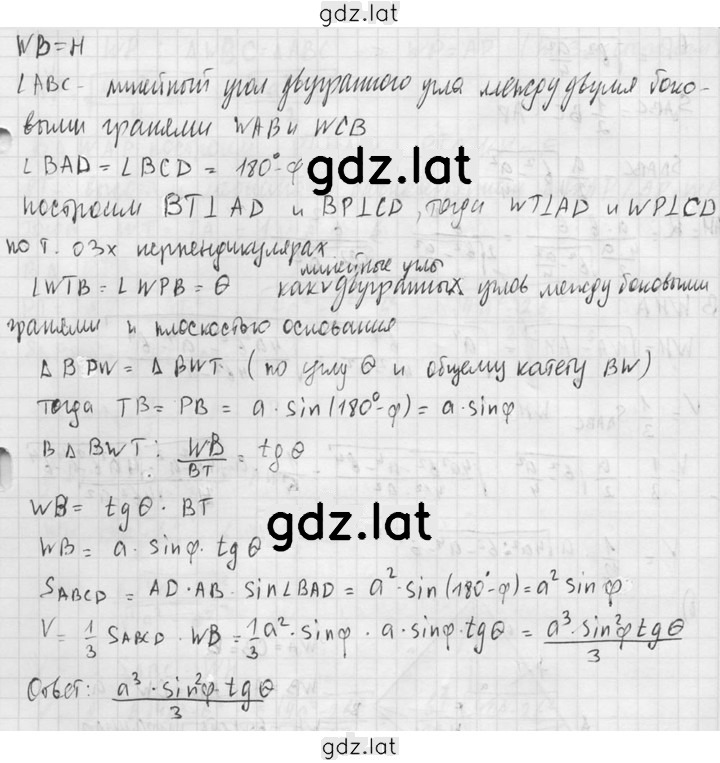 gdz.lat
WB=H
∠ABC - линейный угол двугранного угла между двумя боко-
выми гранями WAB и WCB
∠BAD = ∠BCD = 180°-φ
gdz.lat
построим BT⊥AD и BP⊥CD, тогда WT⊥AD и WP⊥CD
по т. о 3х перпендикулярах
линейные углы
∠WTB = ∠WPB = θ как двугранных углов между боковыми
гранями и плоскостью основания
△BPW = △BWT (по углу θ и общему катету BW)
тогда TB = PB = a·sin(180°-φ) = a·sinφ
В △BWT: WB/BT = tgθ
WB = tgθ · BT
gdz.lat
WB = a · sinφ · tgθ
S_ABCD = AD·AB·sin∠BAD = a²·sin(180°-φ) = a² sinφ
V = 1/3 S_ABCD · WB = 1/3 a²·sinφ · a·sinφ·tgθ = a³·sin²φ tgθ/3
Ответ: a³·sin²φ·tgθ/3
gdz.lat